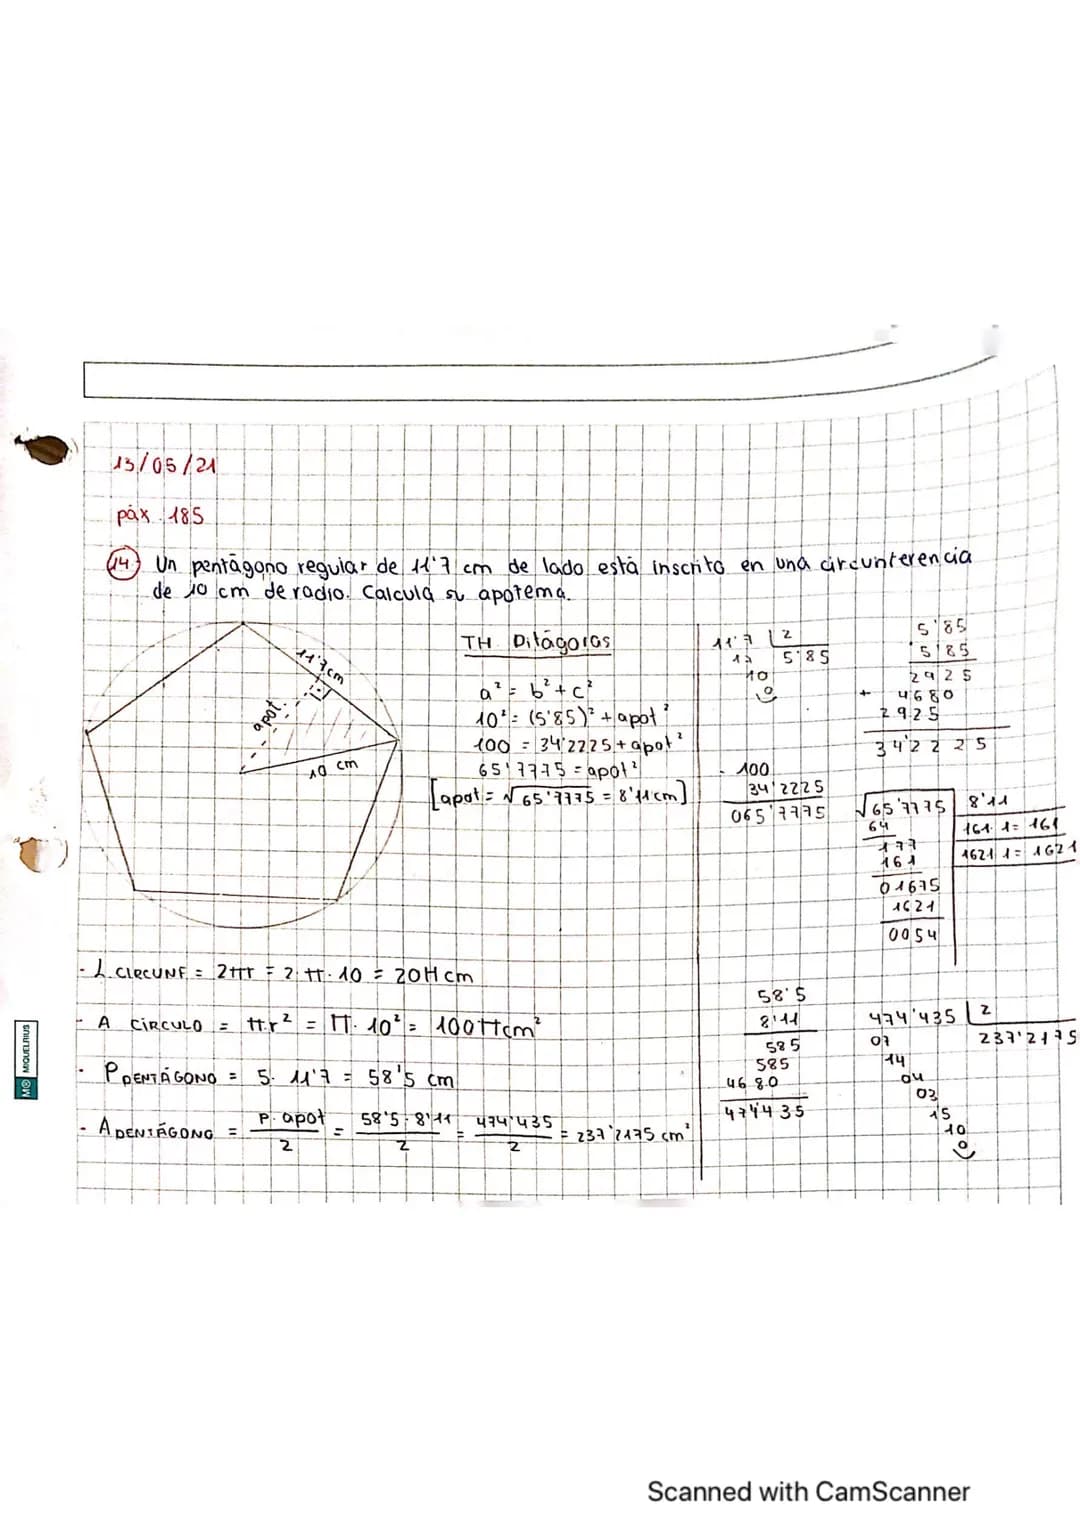 13/05/21
páx. 185
14. Un pentágono regular de 11'7 cm de lado está inscrito en una circunferencia
de 10 cm de radio. Calcula su apotema.
11'7cm
apot.
10 cm
TH. Pitágoras
a² = b² + c²
10² = (5'85)² + apot²
100 = 34'2225 + apot²
65'7775 = apot²
[apot = √65'7775 = 8'11 cm]
11'7 | 2
17 5'85
10
0
5'85
5'85
2925
+ 4680
2925
34'2225
- 100
34'2225
065'7775
√65'7775 | 8'11
64 161·1 = 161
177 1621·1 = 1621
161
01675
1621
0054
- L.CIRCUNF. = 2πr = 2·π·10 = 20π cm
- A CÍRCULO = π·r² = π·10² = 100πcm²
- PPENTÁGONO = 5·11'7 = 58'5 cm
- APENTÁGONO = P·apot / 2 = 58'5·8'11 / 2 = 474'435 / 2 = 237'2175 cm²
58'5
8'11
585
585
4680
474'435
474'435 | 2
07 237'2175
14
04
03
15
10
0
MIQUELRIUS
Scanned with CamScanner